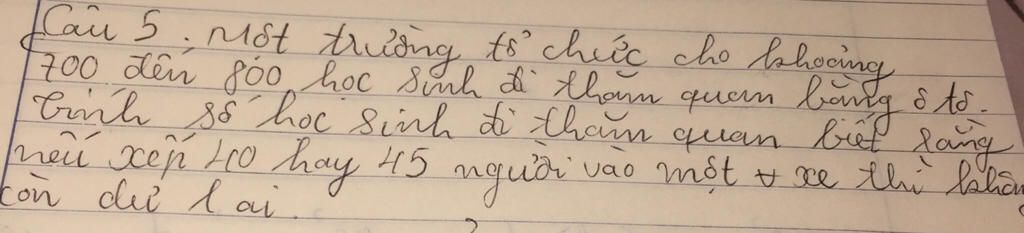 Câu 5. Một trường tổ chức cho khoảng
700 đến 800 học sinh đi thăm quan bằng ô tô.
Tính số học sinh đi thăm quan biết rằng
nếu xếp 40 hay 45 người vào một xe thì khôn
còn dư lại.